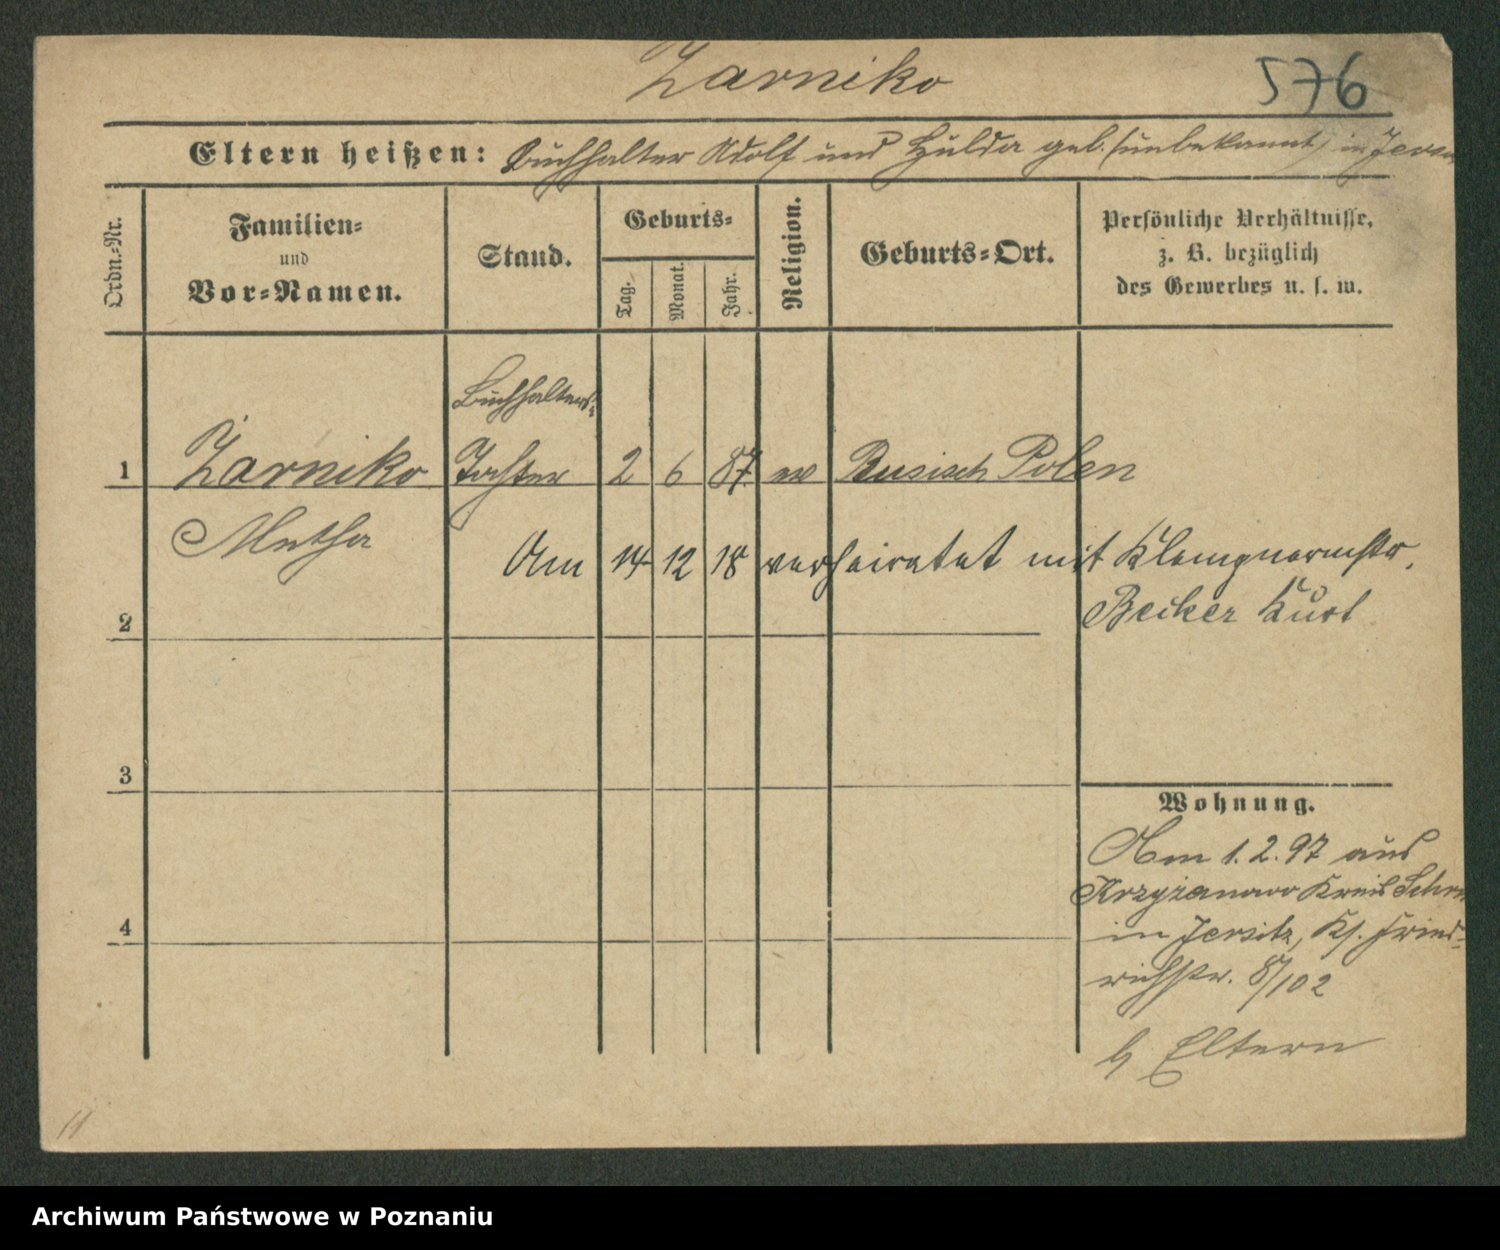 Zarniko
576
Eltern heißen: Buchhalter Adolf und Hulda geb. (unbekannt) in Jers
Ordn.-Nr.
Familien-
und
Vor-Namen.
Stand.
Geburts-
Tag.
Monat.
Jahr.
Religion.
Geburts-Ort.
Persönliche Verhältnisse,
z. B. bezüglich
des Gewerbes u. s. w.
Buchhalters-
1 Zarniko Tochter 2 6 87 ev Rusisch Polen
Am 14 12 18 verheiratet mit Klempnermstr.
2 Becker Kurt
3
Wohnung.
Am 1. 2. 97 aus
Krzyżanowo Kreis Schr
4 in Jersitz, Ks. Fried-
richstr. 87/102
b Eltern
11
Archiwum Państwowe w Poznaniu